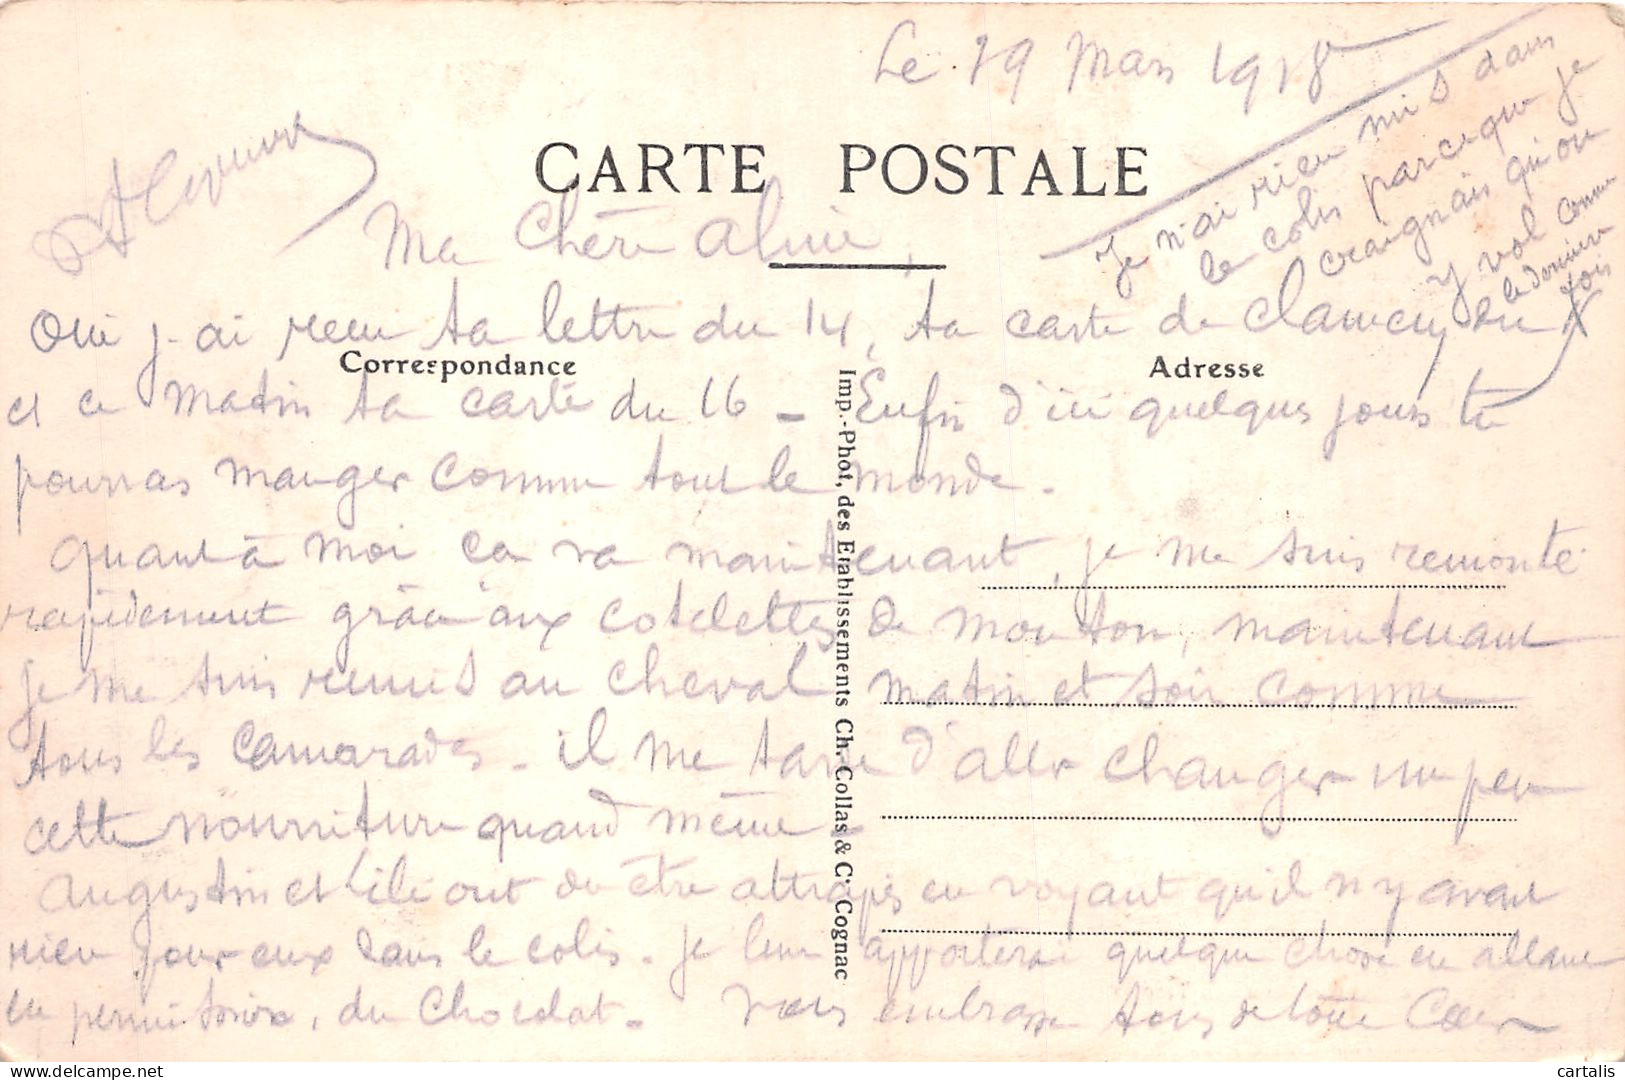 Le 19 Mars 1918
CARTE POSTALE
Je n'ai rien mis dans
le colis parceque je
craignais qu'on
y vol comme
la dernière
fois
Ma Chère Aline,
Oui j'ai recu ta lettre du 14, ta carte de Clamecy du
Correspondance
Adresse
et ce matin ta carte du 16 - Enfin d'ici quelques jours tu
pourras manger comme tout le monde.
Quant à moi ca va maintenant, je me suis remonté
rapidement grâce aux cotelettes de mouton, maintenant
je me suis remis au cheval matin et soir comme
tous les camarades - il me tarde d'aller changer un peu
cette nourriture quand même.
Augustin et Lili ont du être attrapés en voyant qu'il n'y avait
rien pour eux dans le colis. Je leur apporterai quelque chose en allant
en permission, du Chocolat. Vous embrasse tous de tout Cœur
Imp.-Phot. des Etablissements Ch. Collas & Cie Cognac
delcampe.net
cartalis